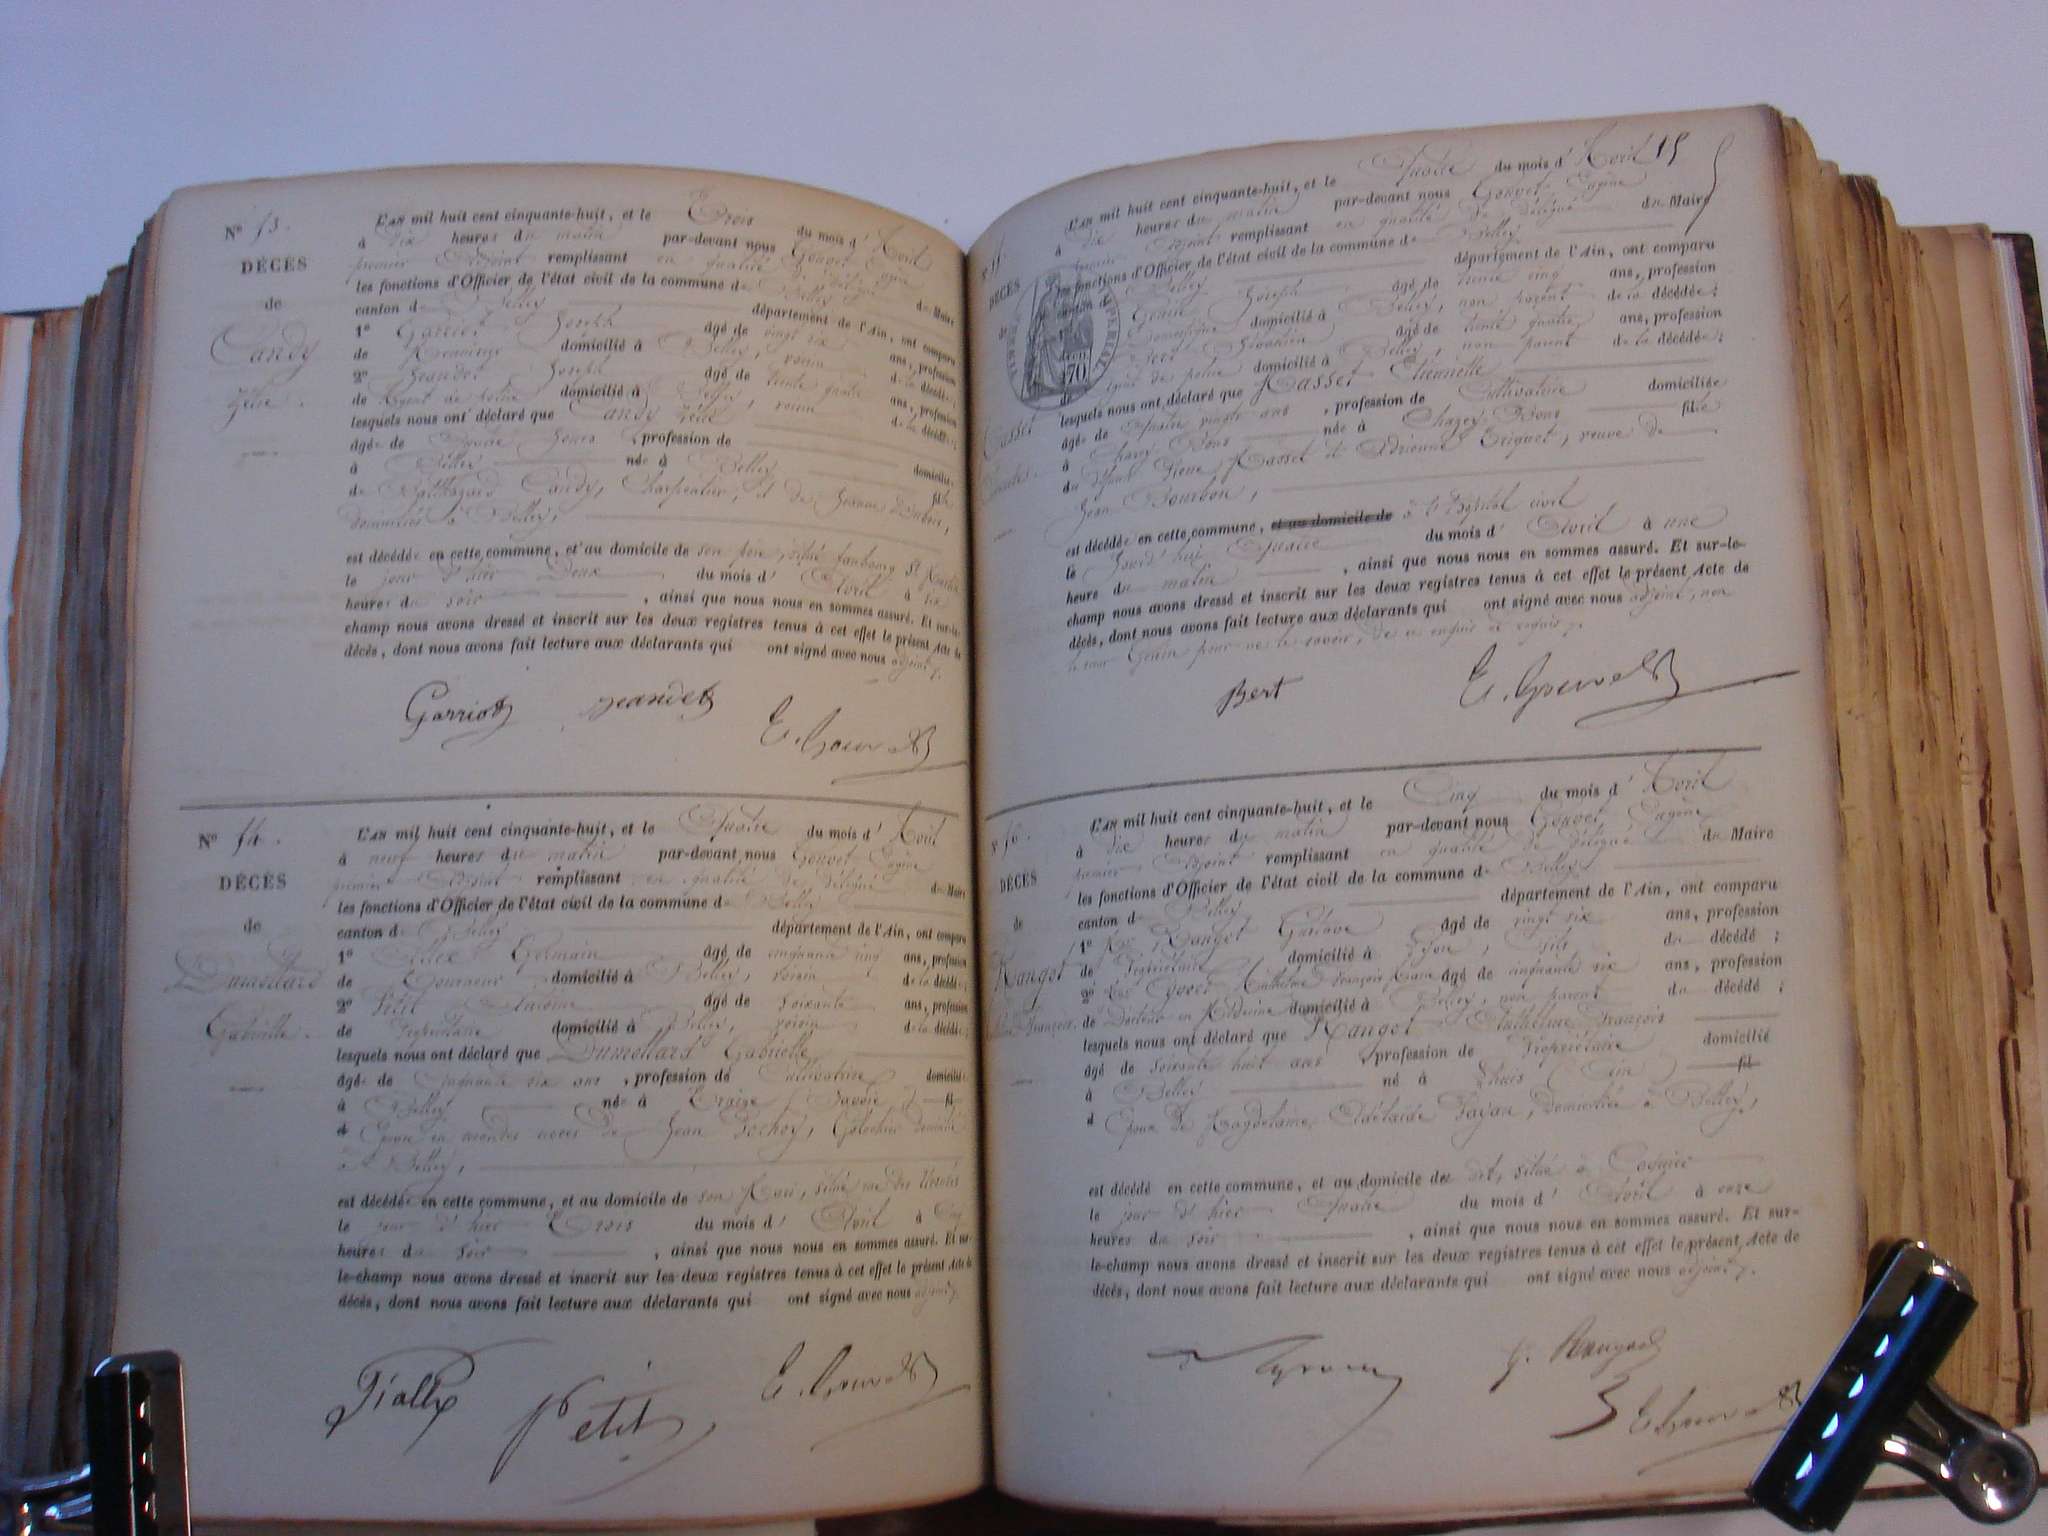 Nº 53.
DÉCÈS
de
Candy
Zélie.
L'AN mil huit cent cinquante-huit, et le Trois du mois d' Avril
à dix heures du matin par-devant nous Gouvet Eugène
premier Adjoint remplissant en qualité de délégué du Maire
les fonctions d'Officier de l'état civil de la commune de Belley
canton de Belley département de l'Ain, ont comparu
1º Garriot Joseph âgé de vingt six ans, profession
de domicilié à Belley, voisin de la décédée;
2º Jeandet Joseph âgé de trente quatre ans, profession
de Agent de police domicilié à Belley, voisin de la décédée;
lesquels nous ont déclaré que Candy Zélie
âgée de heures, profession de domicilié
à Belley née à Belley fille
de Balthazard Candy, Charpentier, et de Jeanne Dubon,
domiciliés à Belley,
est décédée en cette commune, et au domicile de son père, situé faubourg St
le jour d'hier Deux du mois d' Avril à six
heures du soir, ainsi que nous nous en sommes assuré. Et sur-le-
champ nous avons dressé et inscrit sur les deux registres tenus à cet effet le présent Acte de
décès, dont nous avons fait lecture aux déclarants qui ont signé avec nous adjoint.
Garriot Jeandet E. Gouvet
Nº 54.
DÉCÈS
de
Dumollard
Gabrielle.
L'AN mil huit cent cinquante-huit, et le Quatre du mois d' Avril
à neuf heures du matin par-devant nous Gouvet Eugène
premier Adjoint remplissant en qualité de délégué du Maire
les fonctions d'Officier de l'état civil de la commune de Belley
canton de Belley département de l'Ain, ont comparu
1º Germain âgé de cinquante cinq ans, profession
de Tourneur domicilié à Belley, voisin de la décédée;
2º Petit âgé de soixante ans, profession
de Propriétaire domicilié à Belley, voisin de la décédée;
lesquels nous ont déclaré que Dumollard Gabrielle
âgée de Cinquante six ans, profession de Cultivatrice domiciliée
à Belley née à Traize (Savoie) fil
d Epouse en secondes noces de Jean Pochoy, Galochier domicilié
à Belley,
est décédée en cette commune, et au domicile de son Mari, situé rue des
le jour d'hier Trois du mois d' Avril à Cinq
heures du soir, ainsi que nous nous en sommes assuré. Et sur-
le-champ nous avons dressé et inscrit sur les deux registres tenus à cet effet le présent Acte de
décès, dont nous avons fait lecture aux déclarants qui ont signé avec nous adjoint.
Petit E. Gouvet
15
DÉCÈS
de
L'AN mil huit cent cinquante-huit, et le Quatre du mois d' Avril
à dix heures du matin par-devant nous Gouvet Eugène
premier Adjoint remplissant en qualité de délégué du Maire
les fonctions d'Officier de l'état civil de la commune de Belley
canton de Belley département de l'Ain, ont comparu
Joseph âgé de trente cinq ans, profession
domicilié à Belley, non parent de la décédée;
Bert âgé de trente quatre ans, profession
de Agent de police domicilié à Belley, non parent de la décédée;
lesquels nous ont déclaré que Masset Etiennette
âgée de Quatre vingts ans, profession de Cultivatrice domiciliée
à Chazey-Bons née à Chazey-Bons fille
du défunt Pierre Masset et Adrienne Triquet, veuve de
Jean Bourbon,
est décédée en cette commune, et au domicile de à l'Hôpital civil
le Jourd'hui Quatre du mois d' Avril à une
heure du matin, ainsi que nous nous en sommes assuré. Et sur-le-
champ nous avons dressé et inscrit sur les deux registres tenus à cet effet le présent Acte de
décès, dont nous avons fait lecture aux déclarants qui ont signé avec nous adjoint, non
le sieur pour ne le savoir, de ce enquis et requis.
Bert E. Gouvet
TIMBRE IMPERIAL
70
56.
DÉCÈS
de
Rangot
François.
L'AN mil huit cent cinquante-huit, et le Cinq du mois d' Avril
à dix heures du matin par-devant nous Gouvet Eugène
premier Adjoint remplissant en qualité de délégué du Maire
les fonctions d'Officier de l'état civil de la commune de Belley
canton de Belley département de l'Ain, ont comparu
1º Mr Rangot Gustave âgé de vingt six ans, profession
de Propriétaire domicilié à Lyon, fils du décédé;
2º Mr Anthelme François âgé de cinquante six ans, profession
de Docteur en Médecine domicilié à Belley, non parent du décédé;
lesquels nous ont déclaré que Rangot Anthelme François
âgé de soixante huit ans, profession de Propriétaire domicilié
à Belley né à Lhuis (Ain) fil
d Epoux de Magdelaine Adélaïde domiciliée à Belley,
est décédé en cette commune, et au domicile de dit, situé à
le jour d'hier Quatre du mois d' Avril à onze
heures du soir, ainsi que nous nous en sommes assuré. Et sur-
le-champ nous avons dressé et inscrit sur les deux registres tenus à cet effet le présent Acte de
décès, dont nous avons fait lecture aux déclarants qui ont signé avec nous adjoint.
E. Gouvet